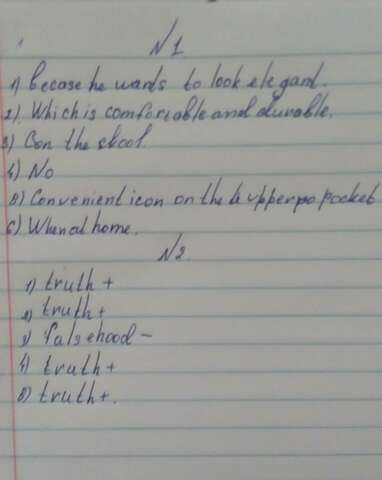 N1
1) becose he wants to look elegant.
2) Which is comfortable and durable.
3) Con the skool
4) No
5) Convenient icon on the upper pocket
6) When at home.
N2
1) truth +
2) truth +
3) falsehood -
4) truth +
5) truth +.